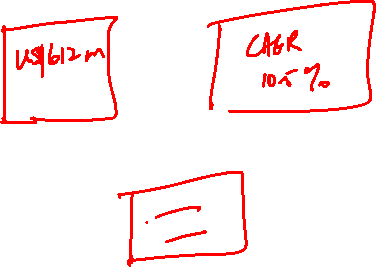 US$612m
CAGR
10.5%